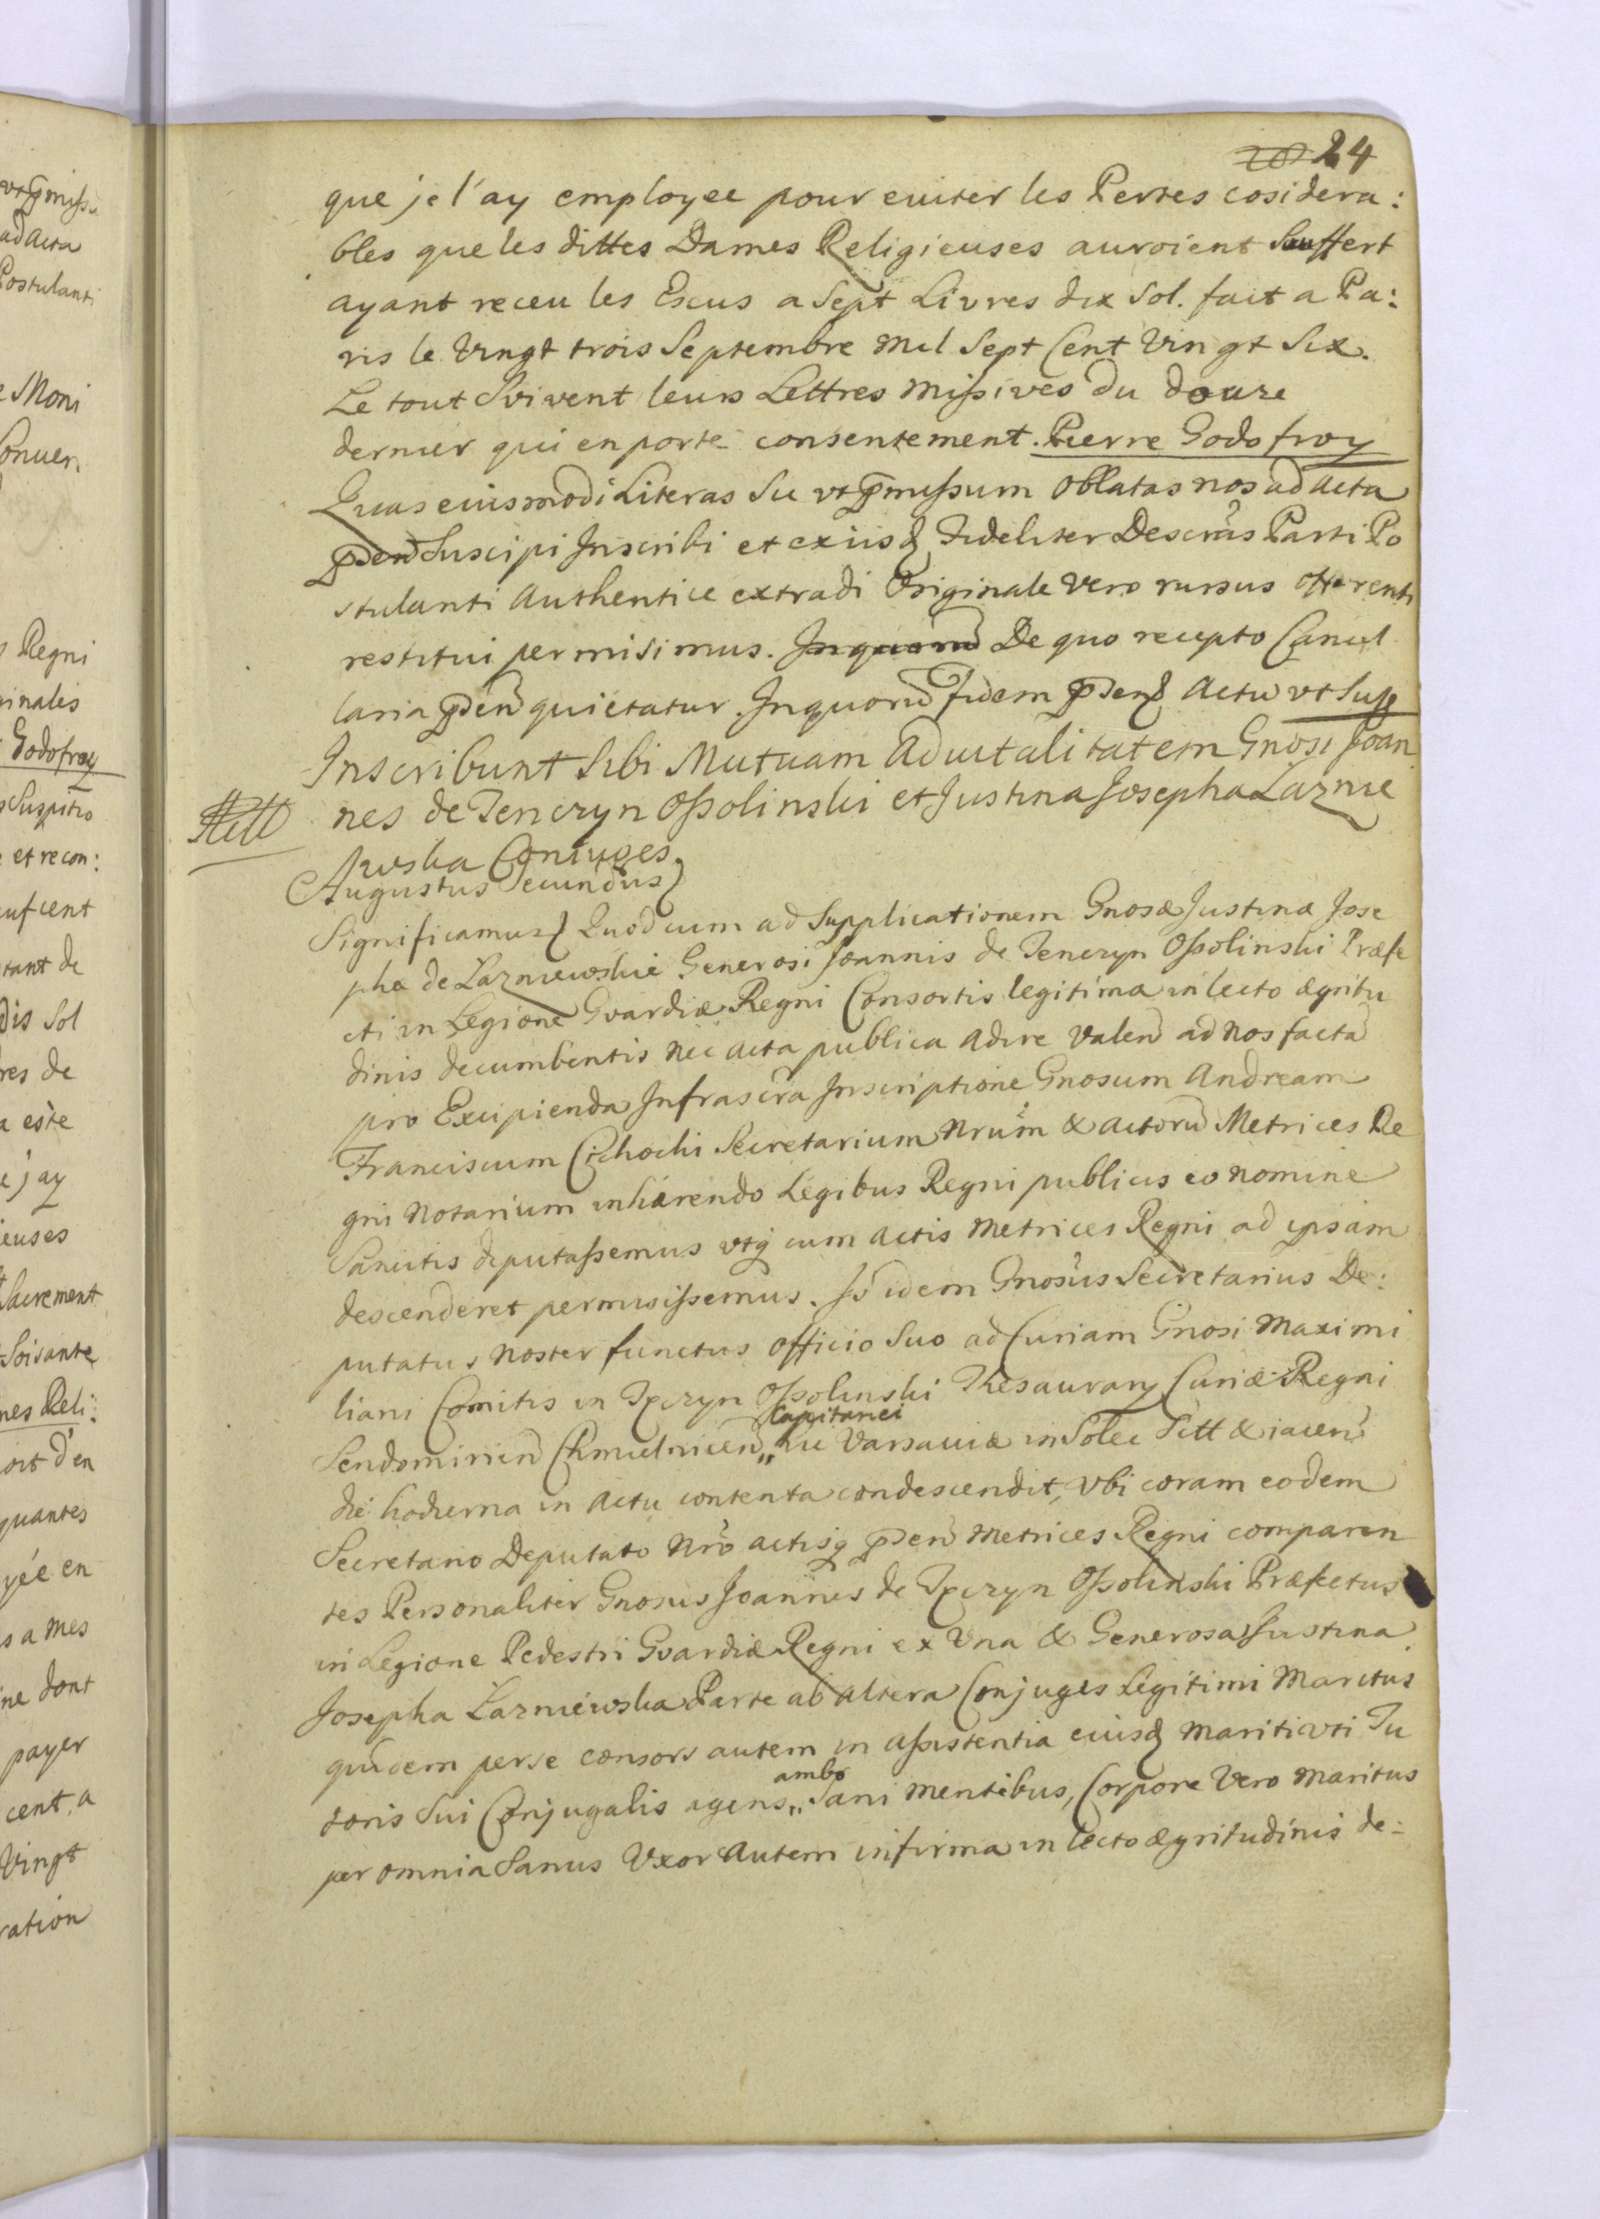 24
que je l'ay employee pour euiter les Pertes cosidera:
bles que les dittes Dames Religieuses auroient Souffert
ayant receu les Escus a Sept Livres dix Sol. fait a Pa:
ris le Vingt trois Septembre Mil Sept Cent Vingt Six.
Le tout Svivent leurs Lettres Missives du douze
dernier qui en porte consentement. Pierre Godofroy
Quas eiusmodi Literas Sic vt pmissum Oblatas nos ad Acta
pnen Suscipi Inscribi et ex iisq Fideliter Descras Parti Po
stulanti Authentice extradi Originale vero rursus offerenti
restitui permisimus. De quo recepto Cancel
laria pnen quietatur. In quoru fidem pnen Actu vt Supp
Inscribunt Sibi Mutuam Aduitalitatem Gnosi Joan
nes de Tenczyn Ossolinski et Justina Josepha Laznie
wska Coniuges.
Augustus Secundus
Significamus Quod cum ad Supplicationem Gnosæ Justinæ Jose
phæ de Lazniewskie Generosi Joannis de Tenczyn Ossolinski Præfe
cti in Legione Gvardiæ Regni Consortis legitima in lecto ægritu
dinis decumbentis nec acta publica adire valen ad nos facta
pro Excipienda Infrascra Inscriptione Gnosum Andream
Franciscum Cichocki Secretarium Nrum & actoru Metrices Re
gni Notarium inhærendo Legibus Regni publicis eo nomine
Sancitis deputassemus vtq cum actis Metrices Regni ad ipsam
descenderet permisissemus. Is idem Gnosus Secretarius De:
putatus noster functus Officio Suo ad Curiam Gnosi Maximi
liani Comitis in Tęczyn Ossolinski Thesaurary Curiæ Regni
Capitanei
Sendomirien Chmielnicen,, hic Varsauiæ in Solec Sitt & iacen
die hodierna in actu contenta condescendit, vbi coram eodem
Secretario Deputato Nro actisq pnen Metrices Regni comparen
tes Personaliter Gnosus Joannes de Tęczyn Ossolinski Præfectus
in Legione Pedestri Gvardiæ Regni ex Vna & Generosa Justina
Josepha Lazniewska Parte ab altera Conjuges Legitimi Maritus
quidem per se consors autem in assistentia eiusq Mariti vti Tu
ambo
toris Sui Conjugalis agens,, Sani mentibus, Corpore Vero Maritus
per omnia Sanus Vxor autem infirma in lecto ægritudinis de:
vt pmissu
ad Acta
Postulanti
Moni
Conuen
Regni
ginales
Godofroy
Suspitio
et recon:
tant de
dis Sol
res de
a este
j'ay
ieuses
Sacrement
Soisante
nes Reli:
d'en
quantes
yée en
s a mes
ine dont
payer
cent, a
Vingt
ration